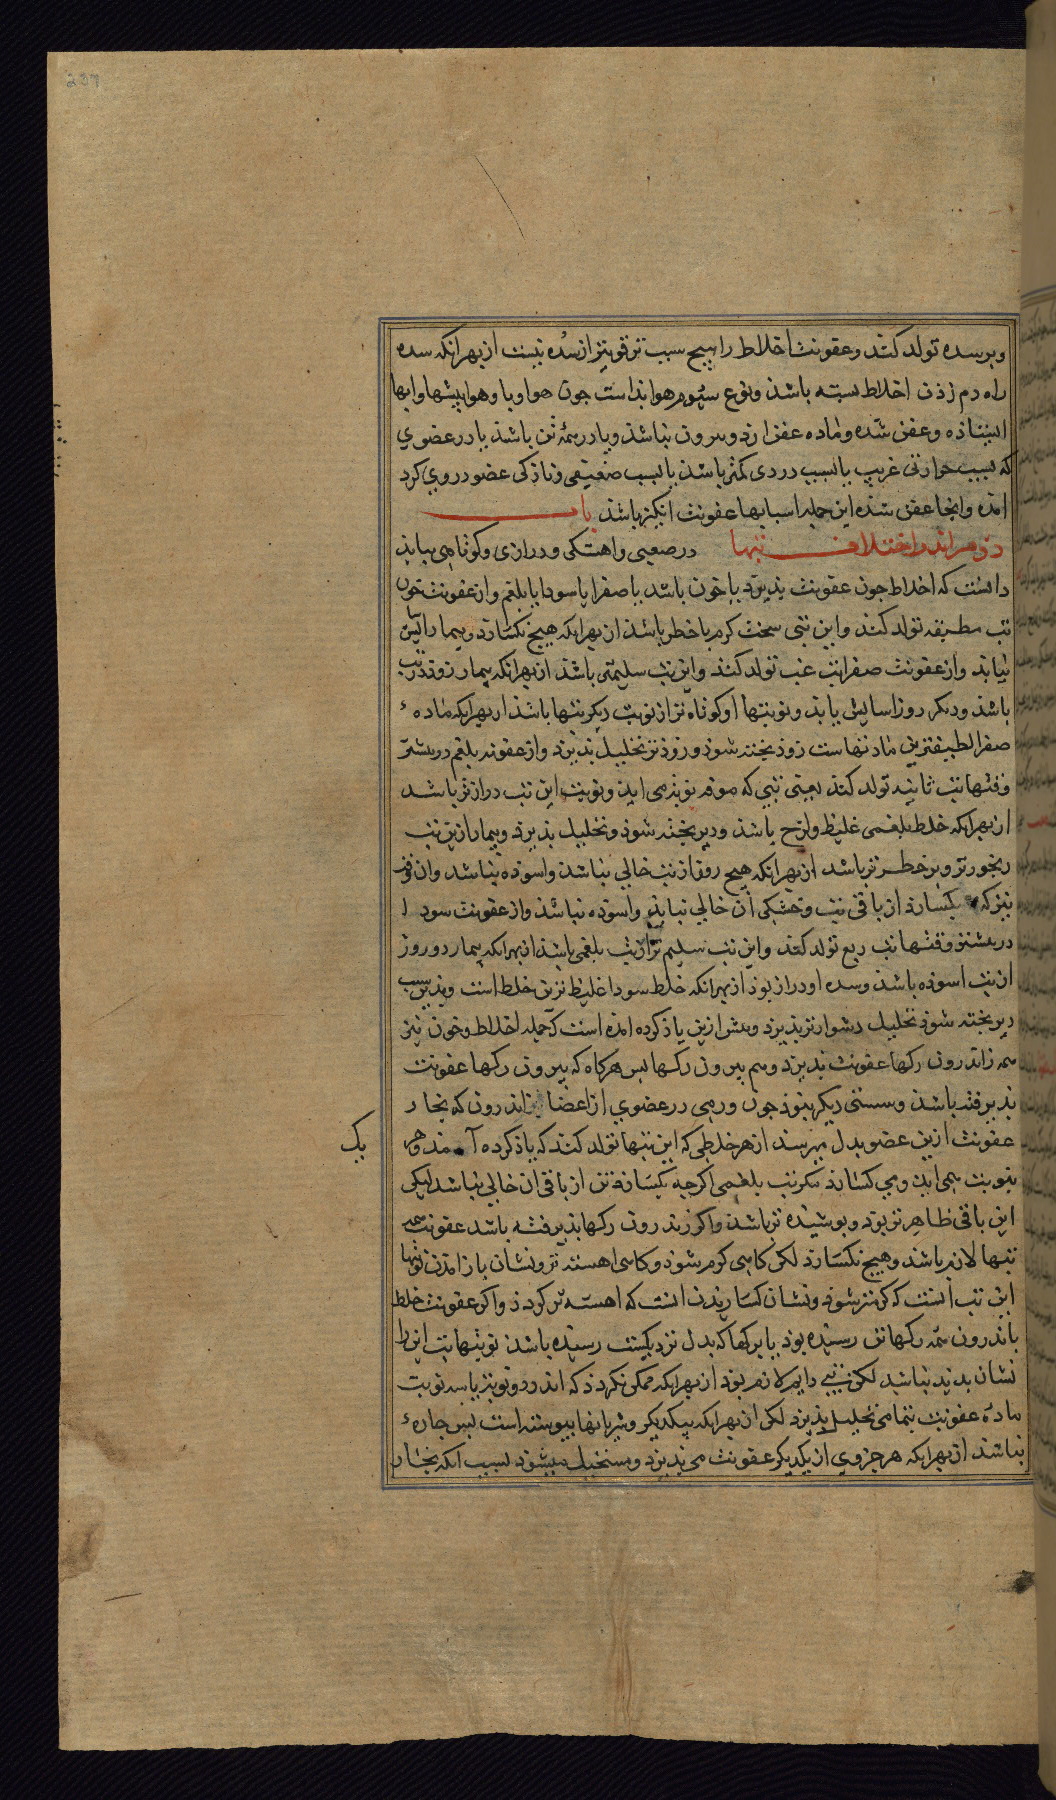 237
و بر سده تولد کند و عفونت اخلاط را هیچ سبب تر قویتر از سُده نیست از بهر انکه سده
راه دم زذن اخلاط بسته باشذ ونوع سیُوم هواء بد است جون هواء وبا و هواء بیشها و ابها
ایستاذه و عفن شده و ماده عفن از بیرون بباشذ ویا در همهٔ تن باشذ یا در عضوی
که بسبب حرارتی غریب یا بسبب دردی کمتر باشذ یا بسبب ضعیفی و نازکی عضو در وی کرد
امده و انجا عفن شده این جمله اسبابها عفونت انکیز باشذ باب
دوم اندر اختلاف تبها در صعبی و اهستکی و درازی و کوتاهی بیایذ
دانست که اخلاط جون عفونت پذیرد یا خون باشد یا صفرا یا سودا یا بلغم و از عفونت خون
تب مطبقه تولد کند و این تبی سخت کرم با خطر باشذ از بهر انکه هیچ نکسارد و بیمار اسایش
نیابذ و از عفونت صفرا تب غب تولد کند و این تب سلیمتر باشذ از بهر انکه بیمار روزی در تب
باشذ و دیکر روز اسایش یابذ و نوبتهاء او کوتاه تر از نوبت دیکر تبها باشذ از بهر انکه مادهء
صفرا لطیفترین مادتهاست زوذ پخته شوذ و زوذتر تحلیل پذیرد و از عفونت بلغم در بیشتر
وقتها تب نائبه تولد کند یعنی تبی که هر روز نوبه می اید و نوبت این تب درازتر باشد
از بهر انکه خلط بلغمی غلیظ و لزج باشذ و دیر پخته شوذ و تحلیل پذیرد و بیمار ازین تب
رنجورتر و پر خطر تر باشد از بهر انکه هیچ روز از تب خالی نباشد و اسوده نباشد و ان وقت
نیز که بکسارد از باقی تب و خشکی ان خالی نباید و اسوده نباشذ و از عفونت سودا
در بیشتر وقتها تب ربع تولد کند و این تب سلیم تر از تب بلغمی باشد از بهر انکه بیمار دو روز
از تب اسوده باشذ وسده او دراز بوذ از بهر انکه خلط سودا غلیظ ترین خلط است و بدین سبب
دیر پخته شوذ تحلیل دشوارتر پذیرد و پیش ازین یاذ کرده امده است که جمله اخلاط و خون نیز
همه از اندرون رکها عفونت پذیرد و هم بیرون رکها پس هرکاه که بیرون رکها عفونت
پذیرفته باشذ و سببی دیکر بنوذ جون ورمی در عضوی از اعضا اندرون که بخار
عفونت ازین عضو بدل میرسد از هر خلطی که این تبها تولد کند که یاذ کرده آمد هر
یک
بنوبت همی اید و می کسارد مکر تب بلغمی اکرجه بکسارد تن از باقی ان خالی نباشد لیکن
این باقی ظاهر تر بوذ و پوشیده تر باشذ و اکر در اندرون رکها پذیرفته باشد عفونت همه
تبها لازم باشذ و هیچ نکسارذ لکن کاهی کرم شوذ و کاهی اهسته تر و نشان باز امدن نوبتهاء
این تب انست که کرمتر شوذ و نشان کساریدن انست که اهسته تر کردد و اکر عفونت خلط
باندرون همه رکهاء تن رسیده بوذ یا برکها که بدل نزدیکست رسیده باشد نوبتهاء تب این را
نشان پدید نباشد لکن تبی دایم لازم بوذ از بهر انکه ممکن نکردد که اندر دو نوبت یا سه نوبت
مادهٔ عفونت بتمامی تحلیل پذیرد لکن از بهر انکه بیکدیکر و شریانها پیوسته است پس چارهء
نباشذ از بهر انکه هر جزوی از یکدیکر عفونت می پذیرد و مستحیل میشود بسبب انکه بخار